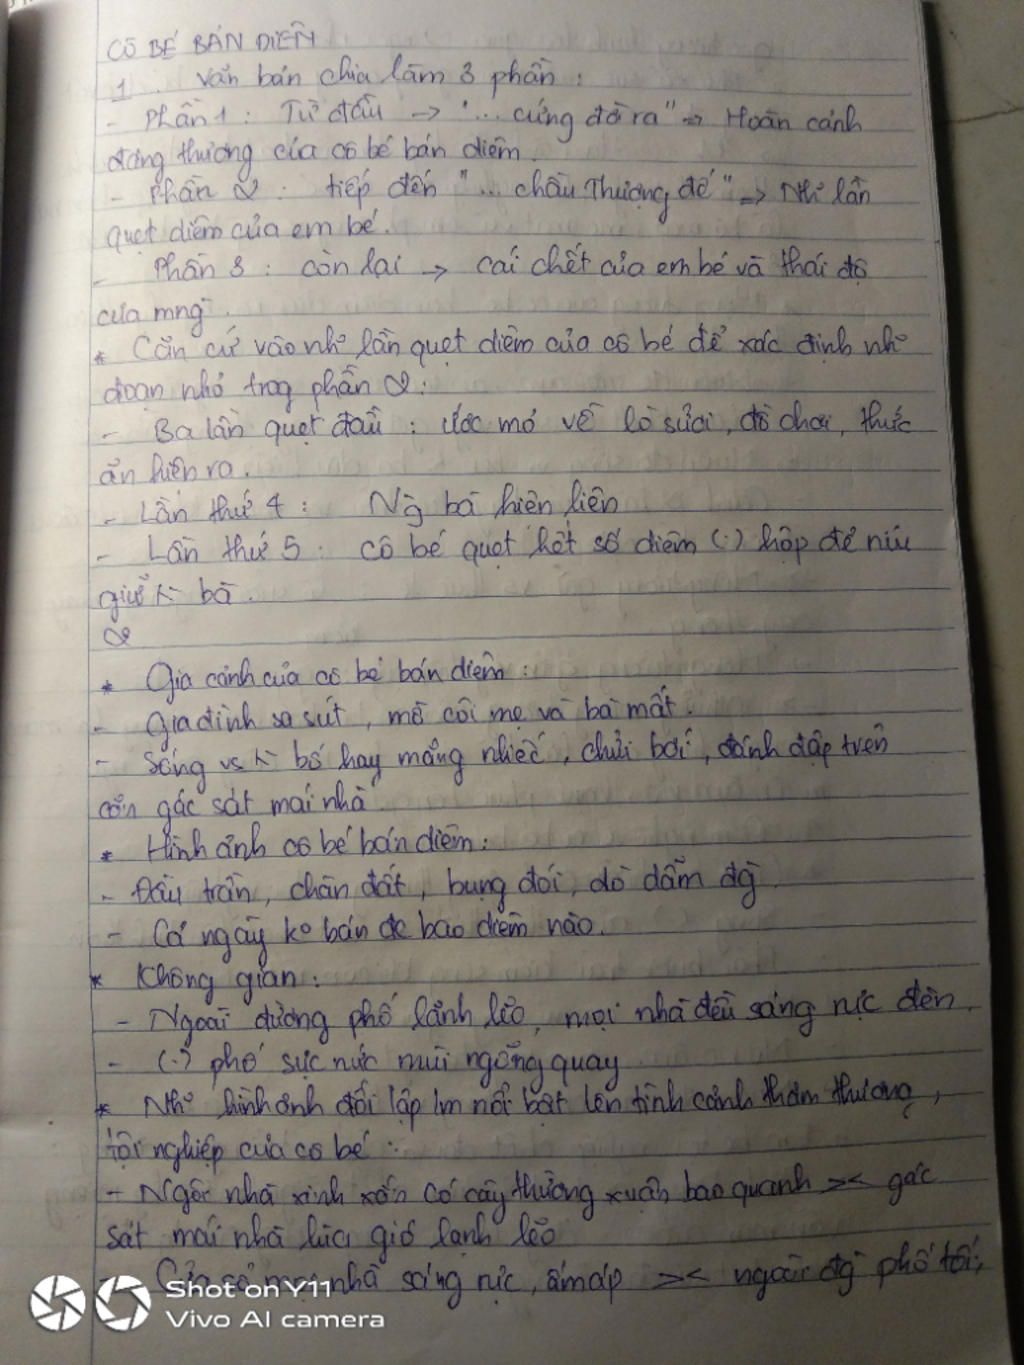 CÔ BÉ BÁN DIÊM
1. Văn bản chia làm 3 phần :
- Phần 1 : Từ đầu → "... cứng đờ ra" => Hoàn cảnh
đáng thương của cô bé bán diêm.
- Phần 2 : tiếp đến "... chầu Thượng đế" => Nh~ lần
quẹt diêm của em bé.
- Phần 3 : còn lại → cái chết của em bé và thái độ
của mng`.
* Căn cứ vào nh~ lần quẹt diêm của cô bé để xác định nh~
đoạn nhỏ trog phần 2 :
- Ba lần quẹt đầu : ước mơ về lò sưởi, đồ chơi, thức
ăn hiện ra.
- Lần thứ 4 : Ng` bà hiện lên
- Lần thứ 5 : cô bé quẹt hết số diêm (.) hộp để níu
giữ bà.
2
* Gia cảnh của cô bé bán diêm :
- Gia đình sa sút, mồ côi mẹ và bà mất.
- Sống vs bố hay mắng nhiếc, chửi bới, đánh đập trên
căn gác sát mái nhà
* Hình ảnh cô bé bán diêm :
- Đầu trần, chân đất, bụng đói, dò dẫm đg`
- Cả ngày ko bán đc bao diêm nào.
* Không gian :
- Ngoài đường phố lạnh lẽo, mọi nhà đều sáng rực đèn.
- (.) phố sực nức mùi ngỗng quay
* Nh~ hình ảnh đối lập lm nổi bật lên tình cảnh thảm thương,
tội nghiệp của cô bé :
- Ngôi nhà xinh xắn có cây thường xuân bao quanh >< gác
sát mái nhà lùa gió lạnh lẽo
- Cửa sổ mọi nhà sáng rực, ấm áp >< ngoài đg` phố tối,
Shot on Y11
Vivo AI camera